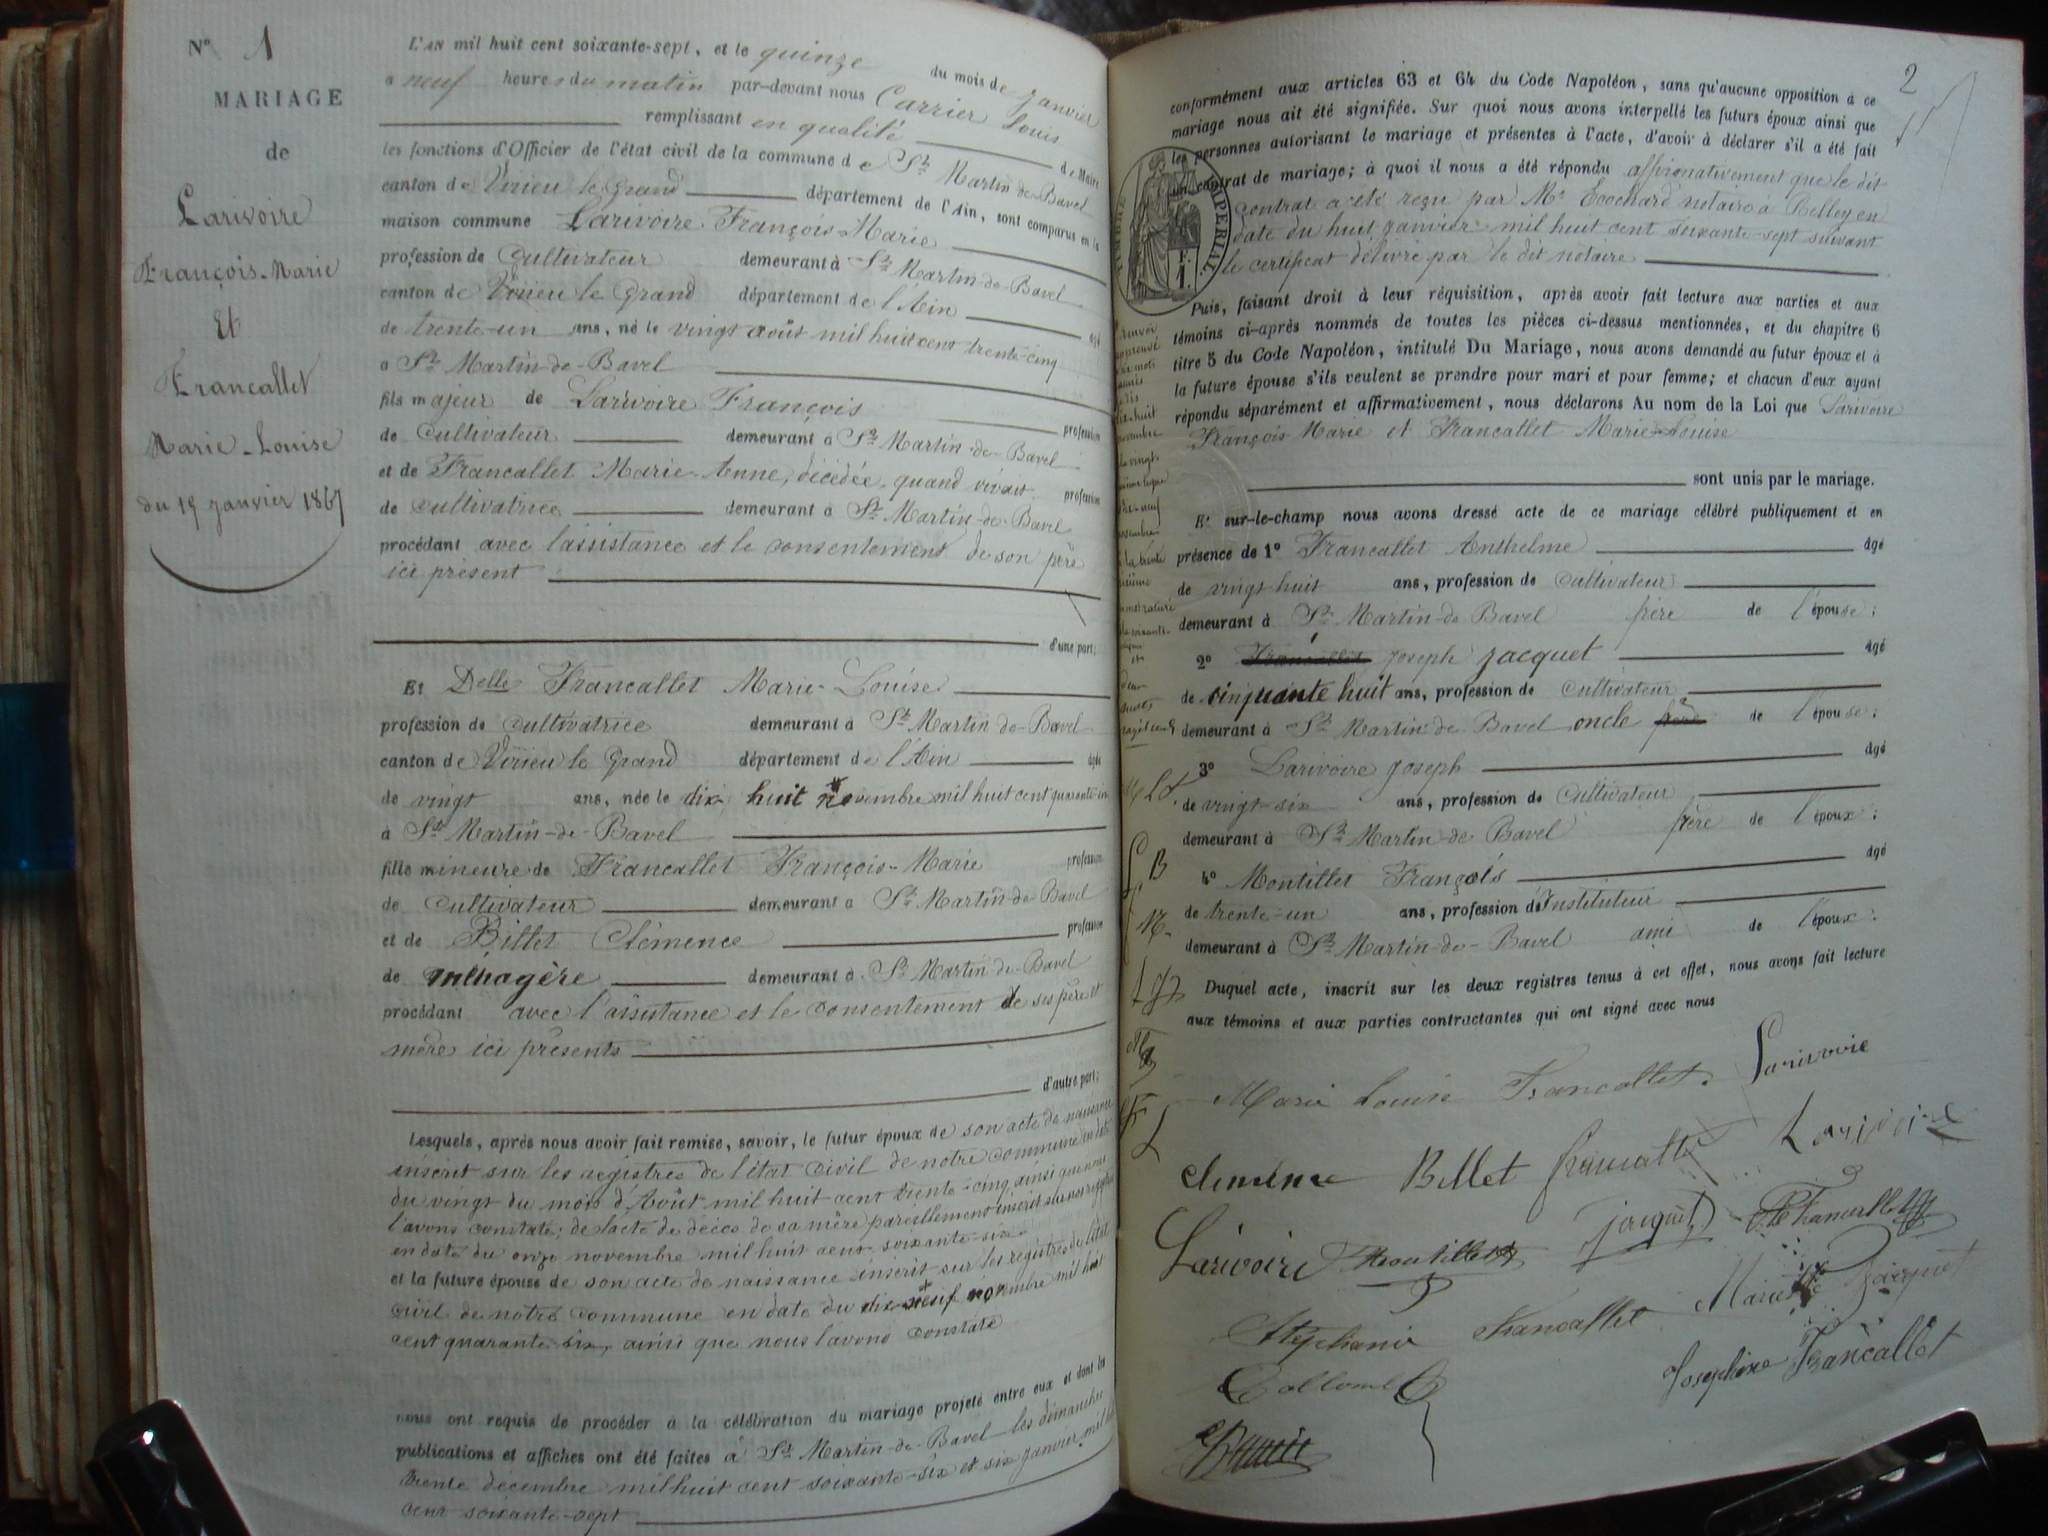 Nº 1
MARIAGE
de
Larivoire
François-Marie
Et
Francallet
Marie-Louise
du 15 janvier 1867
L'AN mil huit cent soixante-sept, et le quinze du mois de janvier
a neuf heures du matin par-devant nous Carrier Louis
remplissant en qualité de Maire
les fonctions d'Officier de l'état civil de la commune de St Martin-de-Bavel
canton de Virieu le Grand département de l'Ain, sont comparus en la
maison commune Larivoire François-Marie
profession de Cultivateur demeurant à St Martin-de-Bavel
canton de Virieu le Grand département de l'Ain âgé
de trente-un ans, né le vingt août mil huit cent trente-cinq
a St Martin-de-Bavel
fils majeur de Larivoire François profession
de Cultivateur demeurant à St Martin-de-Bavel
et de Francallet Marie-Anne, décédée, quand vivait profession
de cultivatrice demeurant à St Martin-de-Bavel
procédant avec l'assistance et le consentement de son père
ici présent
d'une part;
Et Delle Francallet Marie-Louise
profession de cultivatrice demeurant à St Martin-de-Bavel
canton de Virieu le Grand département de l'Ain âgée
de vingt ans, née le dix huit novembre mil huit cent quarante-six
à St Martin-de-Bavel
fille mineure de Francallet François-Marie profession
de Cultivateur demeurant à St Martin-de-Bavel
et de Billet Clémence profession
de ménagère demeurant à St Martin-de-Bavel
procédant avec l'assistance et le consentement de ses père et
mère ici présents
d'autre part;
Lesquels, après nous avoir fait remise, savoir, le futur époux de son acte de naissance
inscrit sur les registres de l'état civil de notre commune en date
du vingt du mois d'Août mil huit cent trente-cinq ainsi que nous
l'avons constaté; de l'acte de décès de sa mère pareillement inscrit sur nos registres
en date du onze novembre mil huit cent soixante-six
et la future épouse de son acte de naissance inscrit sur les registres de l'état
civil de notre commune en date du dix neuf novembre mil huit
cent quarante six, ainsi que nous l'avons constaté
nous ont requis de procéder à la célébration du mariage projeté entre eux et dont les
publications et affiches ont été faites à St Martin-de-Bavel les dimanches
trente décembre mil huit cent soixante-six et six janvier mil huit
cent soixante-sept
2
conformément aux articles 63 et 64 du Code Napoléon, sans qu'aucune opposition à ce
mariage nous ait été signifiée. Sur quoi nous avons interpellé les futurs époux ainsi que
les personnes autorisant le mariage et présentes à l'acte, d'avoir à déclarer s'il a été fait
un contrat de mariage; à quoi il nous a été répondu affirmativement que le dit
contrat a été reçu par Me notaire à Belley en
date du huit janvier mil huit cent soixante-sept suivant
le certificat délivré par le dit notaire
TIMBRE IMPERIAL
F.
1.
Puis, faisant droit à leur réquisition, après avoir fait lecture aux parties et aux
témoins ci-après nommés de toutes les pièces ci-dessus mentionnées, et du chapitre 6
titre 5 du Code Napoléon, intitulé Du Mariage, nous avons demandé au futur époux et à
la future épouse s'ils veulent se prendre pour mari et pour femme; et chacun d'eux ayant
répondu séparément et affirmativement, nous déclarons Au nom de la Loi que Larivoire
François-Marie et Francallet Marie-Louise
sont unis par le mariage.
Et sur-le-champ nous avons dressé acte de ce mariage célébré publiquement et en
présence de 1º Francallet Anthelme âgé
de vingt huit ans, profession de cultivateur
demeurant à St Martin-de-Bavel frère de l'épouse;
2º Francallet Joseph Jacquet âgé
de cinquante huit ans, profession de cultivateur
demeurant à St Martin-de-Bavel oncle frère de l'épouse;
3º Larivoire Joseph âgé
de vingt-six ans, profession de cultivateur
demeurant à St Martin-de-Bavel frère de l'époux;
4º Montillet François âgé
de trente-un ans, profession d'Instituteur
demeurant à St Martin-de-Bavel ami de l'époux;
Duquel acte, inscrit sur les deux registres tenus à cet effet, nous avons fait lecture
aux témoins et aux parties contractantes qui ont signé avec nous
Marie Louise Francallet Larivoire
Clemence Billet francallet Larivoire
Larivoire Montillet jacquet Francallet
Stéphanie Francallet Mariette Jacquet
Josephine Francallet